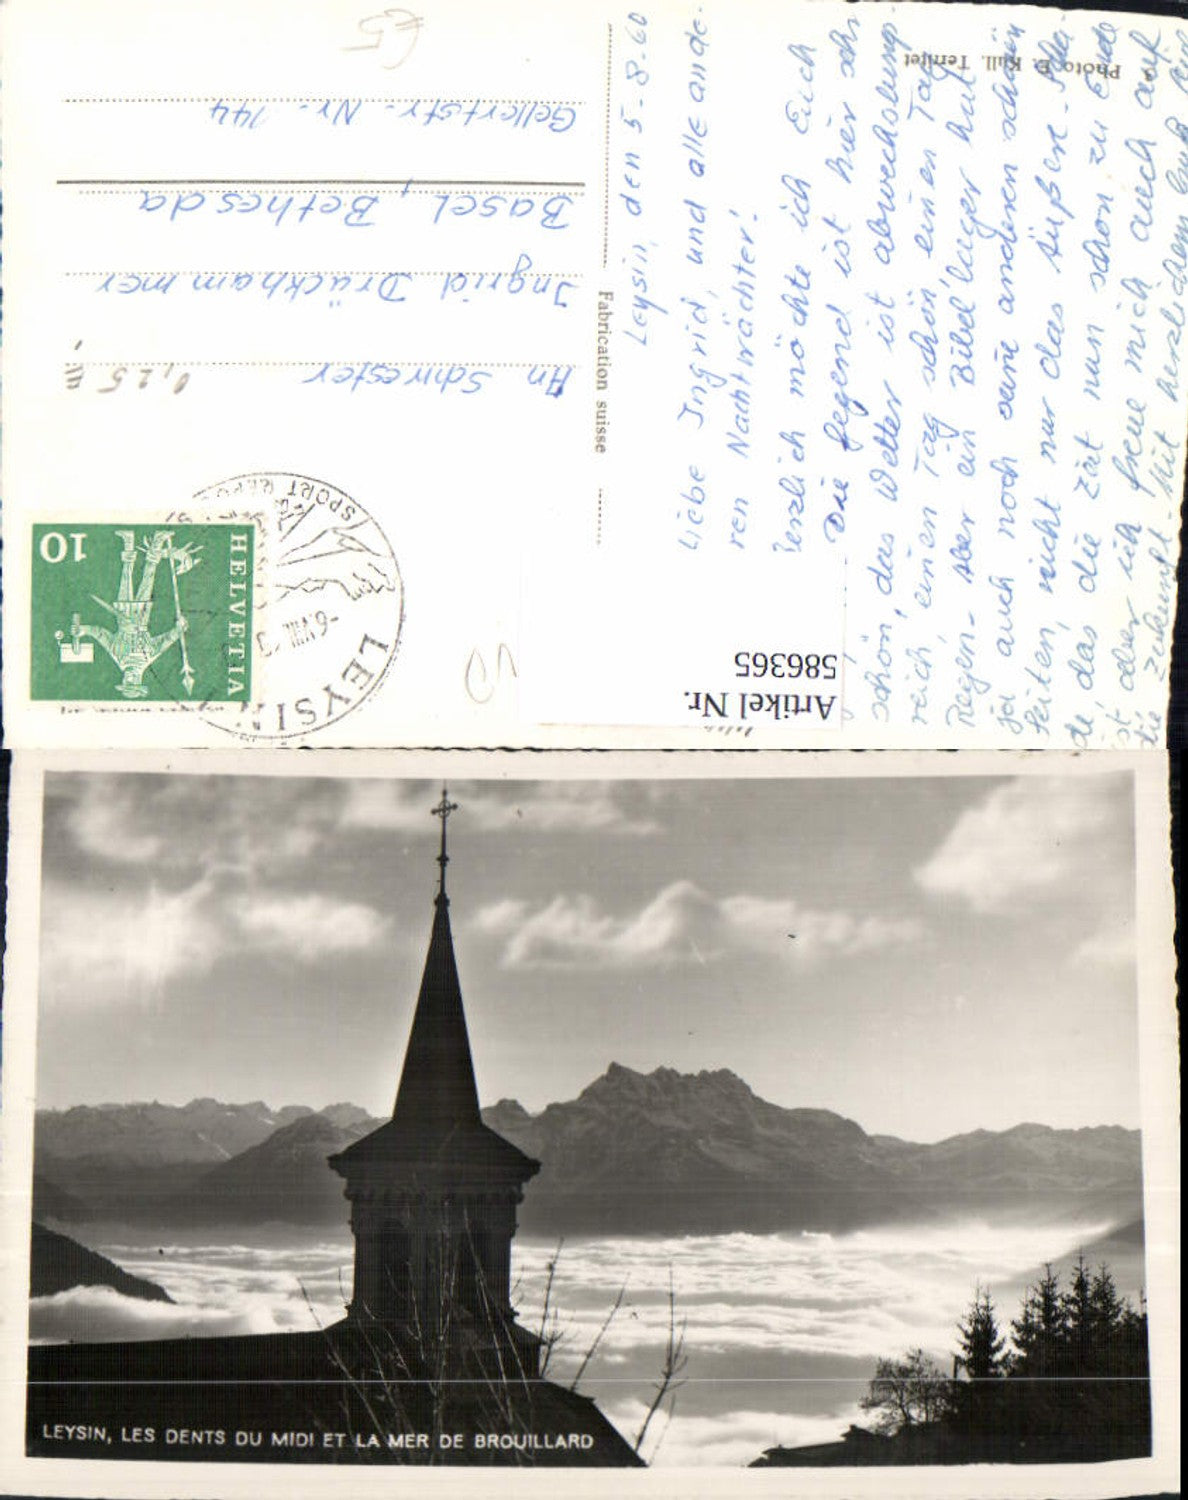 Leysin, den 5.8.60
Liebe Ingrid, und alle ande-
ren Nachtwächter!
Herzlich möchte ich Euch
Die Gegend ist hier sehr
schön, das Wetter ist abwechslung-
reich, einen Tag schön, einen Tag
Regen- aber ein Bibellager hat
ja auch noch seine anderen schönen
Seiten, nicht nur das Äußere.
de, das die Zeit nun schon zu Ende
ist, aber ich freue mich auch auf
die Zukunft. Mit herzlichem
Photo E. Kull. Territet
Fabrication suisse
An Schwester
Ingrid Drückhammer
Basel, Bethesda
Gellertstr. Nr. 144
0,25
£5
HELVETIA
10
LEYSIN
-6.VIII.
SPORT REPOS
Artikel Nr.
586365
LEYSIN, LES DENTS DU MIDI ET LA MER DE BROUILLARD